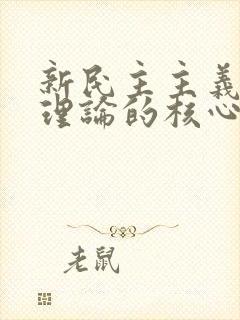 新民主主義
理論的核心
老鼠